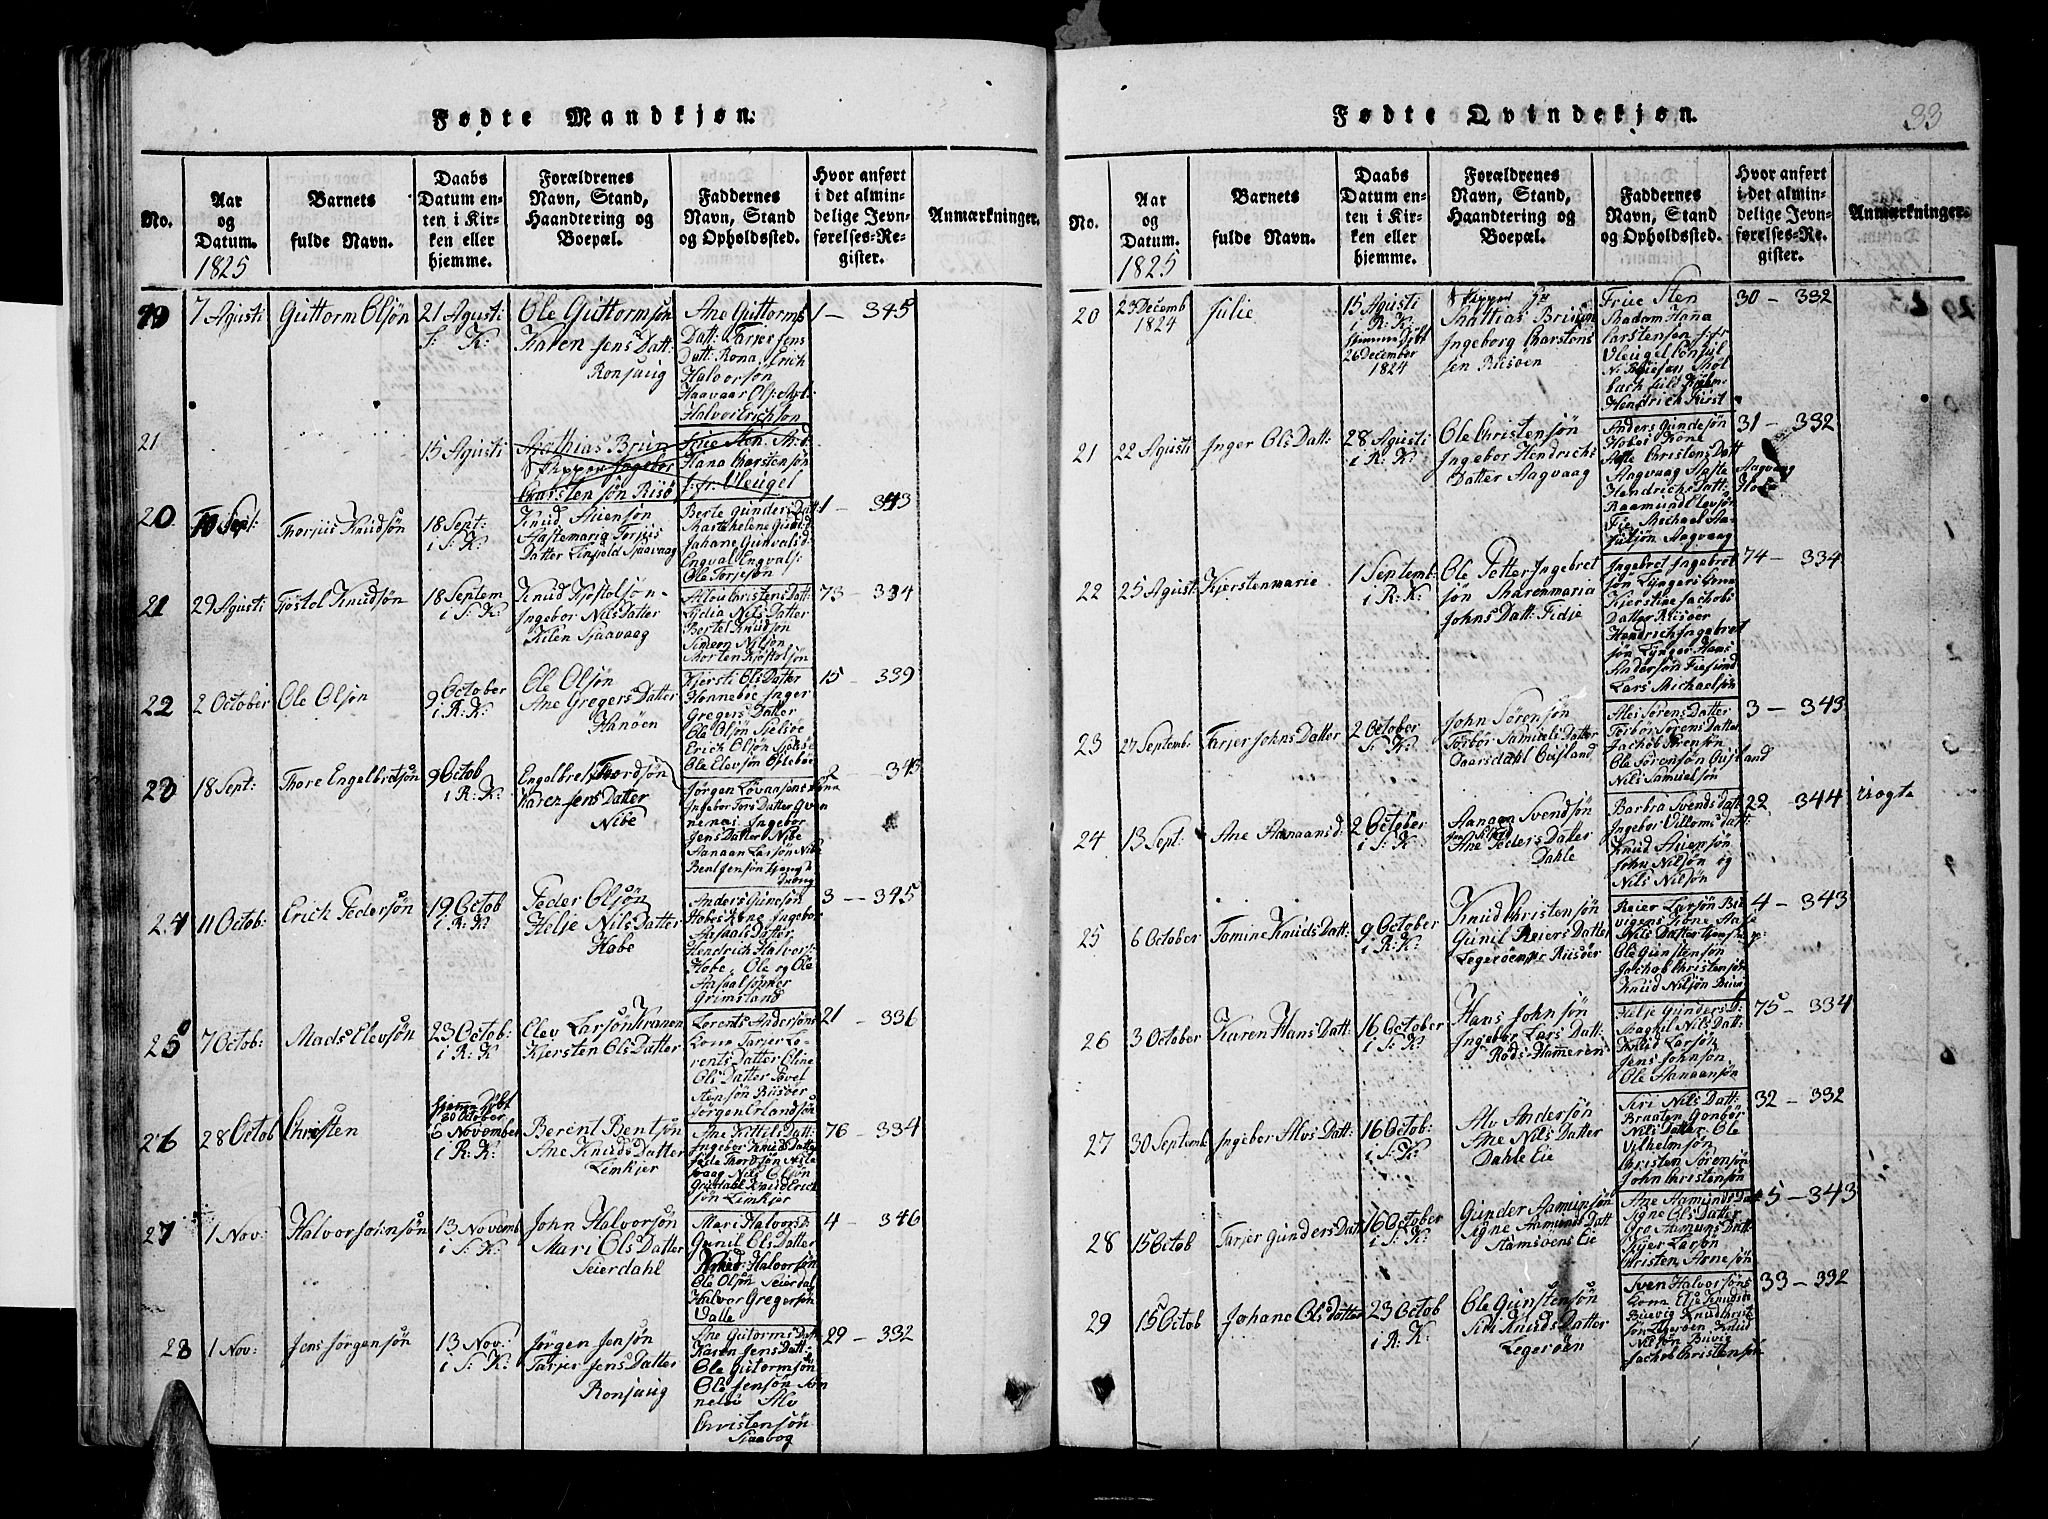 Fødte Mandkjøn.
No.
Aar
og
Datum.
1825
Barnets
fulde Navn.
Daabs
Datum en-
ten i Kir-
ken eller
hjemme.
Forældrenes
Navn, Stand,
Haandtering og
Boepæl.
Faddernes
Navn, Stand
og Opholdssted.
Hvor anført
i det almin-
delige Jevn-
førelses-Re-
gister.
Anmærkninger.
19
7 Agusti
Guttorm Olsøn
21 Agusti
S: K:
Ole Guttormsøn
Karen Jens Datt:
Ronjaug
Ane Guttorms
Datt: Tarjer Jens
Datt: Rona, Erich
Halvorsøn
Haavaar Ols:
Halvor Erichsøn
1 — 345
21
15 Agusti
Mathias Brun
Skipper Ingebor
Carsten søn Risø
Frue Sten
Hana Carstensøn
Vleugel
20
10 Sept:
Thorjus Knudsøn
18 Sept:
i S: K:
Knud Auensøn
Aastemaria Torjus
Datter
Sjaavaag
Berte Gunders Datt
Marthelene
Johane Gunvalsd:
Engval Engvals:
Ole Torjesøn
1 — 343
21
29 Agusti
Tjøstol Knudsøn
18 Septem
i S: K:
Knud Tjøstolsøn
Ingebor Nils Datter
Kilen Sjaavaag
Christens Datt:
Nils Datter
Bertel Knudsøn
Simen Nilsøn
Morten Tjøstolsøn
73 — 334
22
2 October
Ole Olsøn
9 October
i R: K:
Ole Olsøn
Ane Gregers Datter
Hanøen
Kjersti Ols Datter
Honnebie Inger
Gregers Datter
Ole Olsøn Sielsøe
Erich Olsøn Sielsøe
Ole Elevsøn
15 — 339
23
18 Sept:
Thore Engelbretsøn
9 Octob
i R: K:
Engelbret Tordsøn
Karen Jens Datter
Nibe
Jørgen
Ingebor Tors Datter
Ingebor
Jens Datter Nibe
Aanaan Larsøn Nibe
Bent Jensøn
2 — 343
24
11 Octob:
Erich Pedersøn
19 Octob
i R: K:
Peder Olsøn
Helje Nils Datter
Hobe
Anders Gundsøn
Hobes Kone Ingebor
Aasaals Datter
Hendrich Halvors:
Hobe, Ole og Ole
Aasaalsønner
Grimsland
3 — 345
25
7 Octob:
Mads Elevsøn
23 Octob:
i R: K:
Elev Larsøn Kranen
Kjersten Ols Datter
Lorents Andersøns
Kone Tarjer Lo-
rents Datter Oline
Ols Datter Povel
Stensøn Riisøer
Jørgen Erlandsøn
21 — 336
26
28 Octob
Christen
hjemme Døbt
30 October
6 November
i R: K:
Berent Bentsøn
Ane Knuds Datter
Limkjer
Ane Kittils Datt:
Ingebor Knuds Datter
Tordsøn
Nils Olsøn
Knud Erich
søn Limkjer
76 — 334
27
1 Nov:
Halvor Johnsøn
13 Novemb
i S: K:
John Halvorsøn
Mari Ols Datter
Seierdahl
Mari Halvors:
Gunil Ols Datter
Knud Halvorsøn
Ole Olsøn Seierdal
Halvor Gregersøn
Dalle
4 — 346
28
1 Nov:
Jens Jørgensøn
13 Nov:
i S: K:
Jørgen Jensøn
Tarjer Jens Datter
Ronjaug
Ane Gutorms Datt
Karen Jens Datt:
Ole Gutormsøn
Ole Jensøn
Alv
Christensøn
Siaabog
29 — 332
Fødte Qvindekjøn.
33
No.
Aar
og
Datum.
1825
Barnets
fulde Navn.
Daabs
Datum en-
ten i Kir-
ken eller
hjemme.
Forældrenes
Navn, Stand,
Haandtering og
Boepæl.
Faddernes
Navn, Stand
og Opholdssted.
Hvor anført
i det almin-
delige Jevn-
førelses-Re-
gister.
Anmærkninger.
20
23 Decemb
1824
Julie
15 Agusti
i R: K:
hjemme Døbt
26 December
1824
Skipper Hr
Mathias Bruun
Ingeborg Charstens
sen Riisøen
Frue Sten
Madam Hana
Carstensen
Vleugel Consul
Hendrich Kirst
30 — 332
21
22 Agusti
Inger Ols Datt:
28 Agusti
i R: K:
Ole Christensøn
Ingebor Hendrichs
Datter Aagvaag
Anders Gundesøn
Hobes Kone
Christens Datt
Aagvaag Aaste
Hendrichs Datt:
Raamund Elevsøn
Michael
Aagvaag
31 — 332
22
25 Agust:
Kjerstenmarie
1 Septemb:
i R: K:
Ole Petter Ingebret
søn Marenmaria
Johns Datt: Fidje
Ingebret Ingebret
søn
Kjerstine Jachobs
Datter Riisøer
Hendrich Ingebret
søn Lynger Hans
Andersøn
Lars Michaelsøn
74 — 334
23
27 Septemb:
Tarjer Johns Datter
2 October
S: K:
John Sørensøn
Torbor Samuels Datter
Gusland
Sørens Datter
Torbor Sørens Datter
Jachob Sørensøn
Ole Sørensøn Gusland
Nils Samuelsøn
3 — 343
24
13 Sept:
Ane Aanaansd:
2 October
i S: K:
Aanaan Svendsøn
Ane Peders Datter
Dahle
Barbra Svends datt
Ingebor Villoms datt:
Knud Auensøn
John Nilsøn og
Nils Nilsøn
22 — 344
25
6 October
Tomine Knuds Datt:
9 October
i R: K:
Knud Christensøn
Gunil Reiers Datter
Legeroen Riisøer
Reier Larsøn Bu
vigens Kone Aase
Nils Datter
Ole Gunstensøn
Jachob Christensøn
Knud Nilsøn
4 — 343
26
3 October
Karen Hans Datt:
16 October
i S: K:
Hans Johnsøn
Ingebor Lars Datt:
Røds Hammeren
Helje Gunders D:
Nils Datt:
Knud Larsøn
Jens Johnsøn
Ole Aanaansøn
75 — 334
27
30 Septemb:
Ingebor Alvs Datt:
16 Octob:
i S: K:
Alv Andersøn
Ane Nils Datter
Dahle Eie
Siri Nils Datt:
Braaten Gonbor
Nils Datter Ole
Vilhelmsøn
Christen Sørensøn
John Christensøn
32 — 332
28
15 Octob
Tarjer Gunders Datt
16 October
i S: K:
Gunder Aamunsøn
Signe Aamunds Datt
Stamsøens Eie
Ane Aamunds Datt
Signe Ols Datter
Aamuns Datt:
Larsøn
Christen Arnesøn
5 — 343
29
15 Octob
Johane Ols Datter
23 Octob
i R: K:
Ole Gunstensøn
Siri Knuds Datter
Legerøen
Sven Halvorsøns
Kone Elje Knuds
Buevig Knud Christ
søn Legerøen Knud
Nilsøn Buvig
Jachob Christensøn
33 — 332